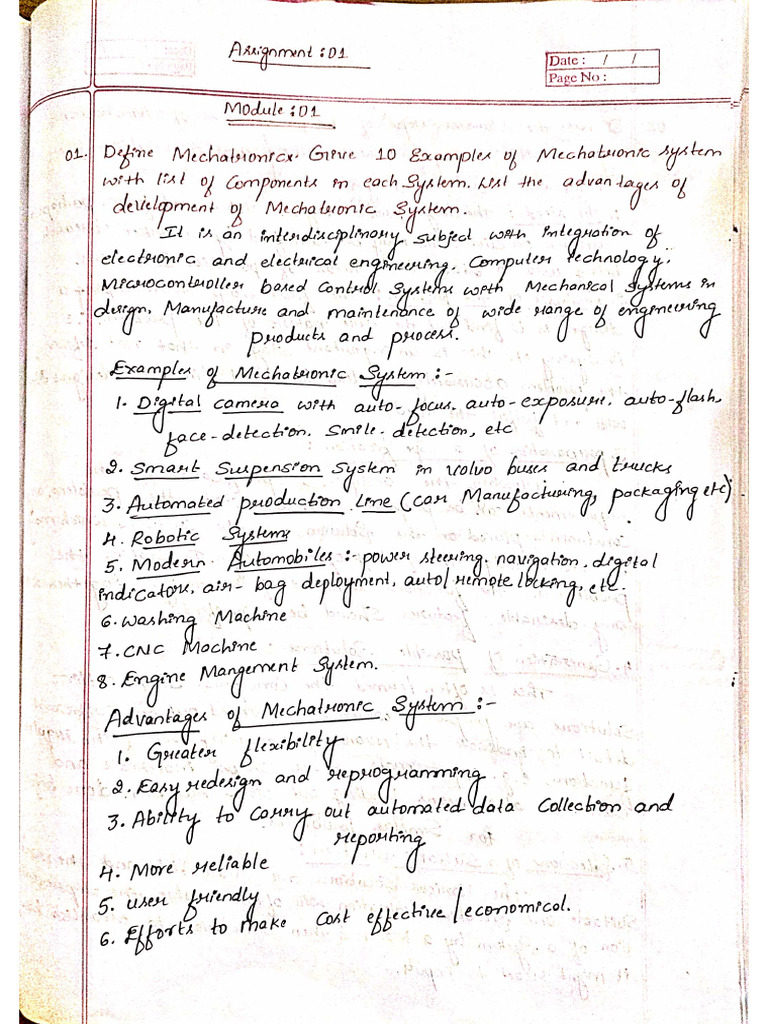 Assignment: 01
Date : / /
Page No :
Module: 01
01. Define Mechatronics. Give 10 Examples of Mechatronic system
with list of Components in each System. List the advantages of
development of Mechatronic System.
It is an interdisciplinary subject with integration of
electronic and electrical engineering, Computer technology,
Microcontroller based control systems with Mechanical Systems in
design, Manufacture and maintenance of wide range of engineering
products and process.
Examples of Mechatronic System :-
1. Digital camera with auto-focus, auto-exposure, auto-flash,
face-detection, Smile-detection, etc
2. Smart Suspension System in Volvo buses and/trucks
3. Automated production Line (car Manufacturing, packaging etc)
4. Robotic Systems
5. Modern Automobiles :- power steering, navigation, digital
indicators, air-bag deployment, auto/remote locking, etc.
6. Washing Machine
7. CNC Machine
8. Engine Mangement System.
Advantages of Mechatronic System :-
1. Greater flexibility
2. Easy redesign and reprogramming
3. Ability to carry out automated data Collection and
reporting
4. More reliable
5. user friendly
6. Efforts to make cost effective/economical.